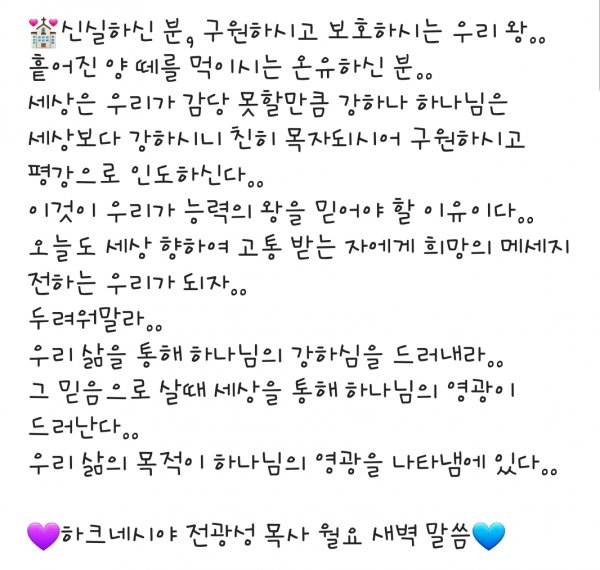 💒신실하신 분, 구원하시고 보호하시는 우리 왕..
흩어진 양 떼를 먹이시는 온유하신 분..
세상은 우리가 감당 못할만큼 강하나 하나님은
세상보다 강하시니 친히 목자되시어 구원하시고
평강으로 인도하신다..
이것이 우리가 능력의 왕을 믿어야 할 이유이다..
오늘도 세상 향하여 고통 받는 자에게 희망의 메세지
전하는 우리가 되자..
두려워말라..
우리 삶을 통해 하나님의 강하심을 드러내라..
그 믿음으로 살때 세상을 통해 하나님의 영광이
드러난다..
우리 삶의 목적이 하나님의 영광을 나타냄에 있다..
💜하크네시야 전광성 목사 월요 새벽 말씀💙